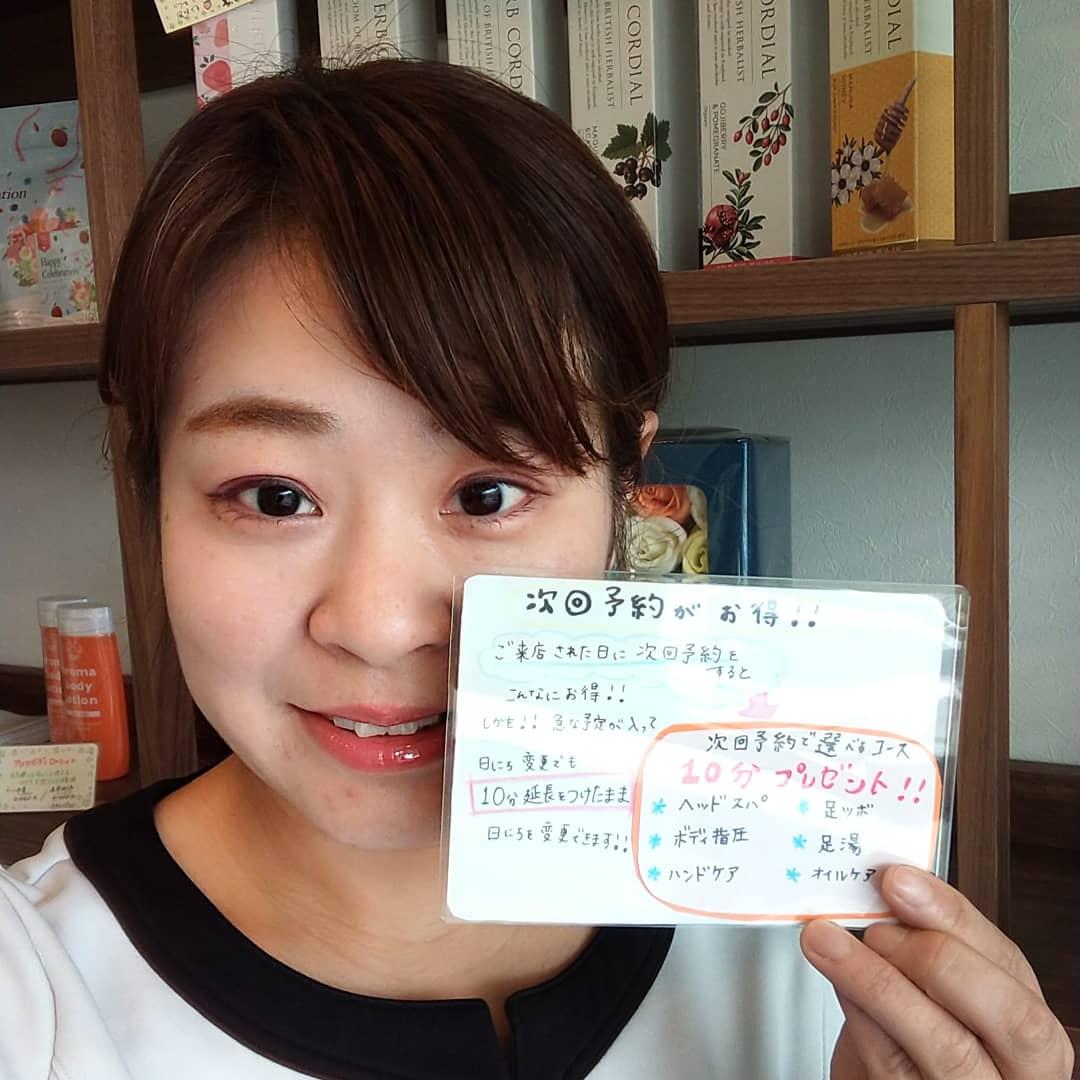 HERB
OF BRIT
HERB CORD
OF BRITISH
CORDIAL
BRITISH HERBALIST
CORDIAL
BRITISH HERBALIST
GOJIBERRY
& POMEGRANATE
MANUKA
HONEY
Happy
Celebration
body
lotion
次回予約がお得!!
ご来店された日に次回予約を
すると
こんなにお得!!
しかも!!急な予定が入って
日にち変更でも
10分延長をつけたまま
日にちを変更できます!!
次回予約で選べるコース
10分プレゼント!!
* ヘッドスパ * 足ツボ
* ボディ指圧 * 足湯
* ハンドケア * オイルケア